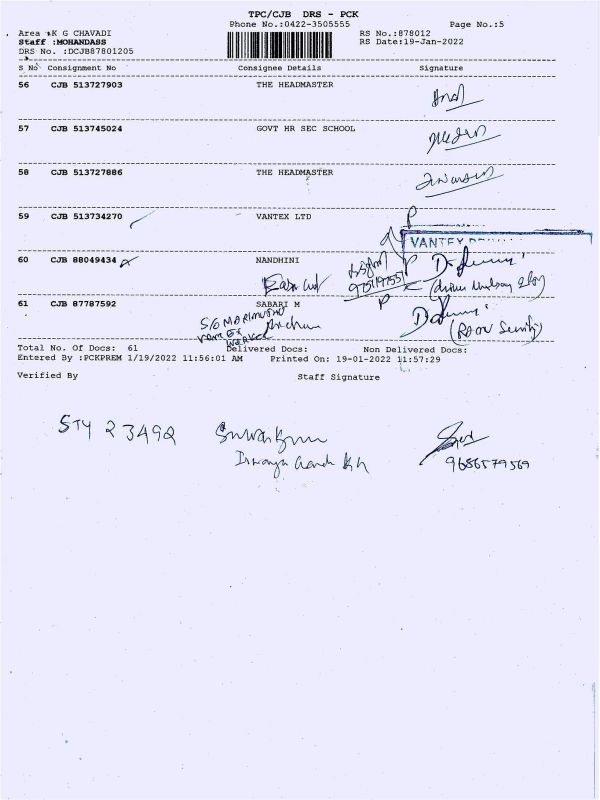 TPC/CJB DRS - PCK
Phone No.:0422-3505555 Page No.:5
Area :K G CHAVADI RS No.:878012
Staff :MOHANDASS RS Date:19-Jan-2022
DRS No. :DCJB87801205
S No Consignment No Consignee Details Signature
56 CJB 513727903 THE HEADMASTER
57 CJB 513745024 GOVT HR SEC SCHOOL
58 CJB 513727886 THE HEADMASTER
59 CJB 513734270 VANTEX LTD
VANTEX
60 CJB 88049434 NANDHINI
61 CJB 87787592 SABARI M
S/O MARIMUTHU
(Room Security)
Total No. Of Docs: 61 Delivered Docs: Non Delivered Docs:
Entered By :PCKPREM 1/19/2022 11:56:01 AM Printed On: 19-01-2022 11:57:29
Verified By Staff Signature
STY 23492
9686579569